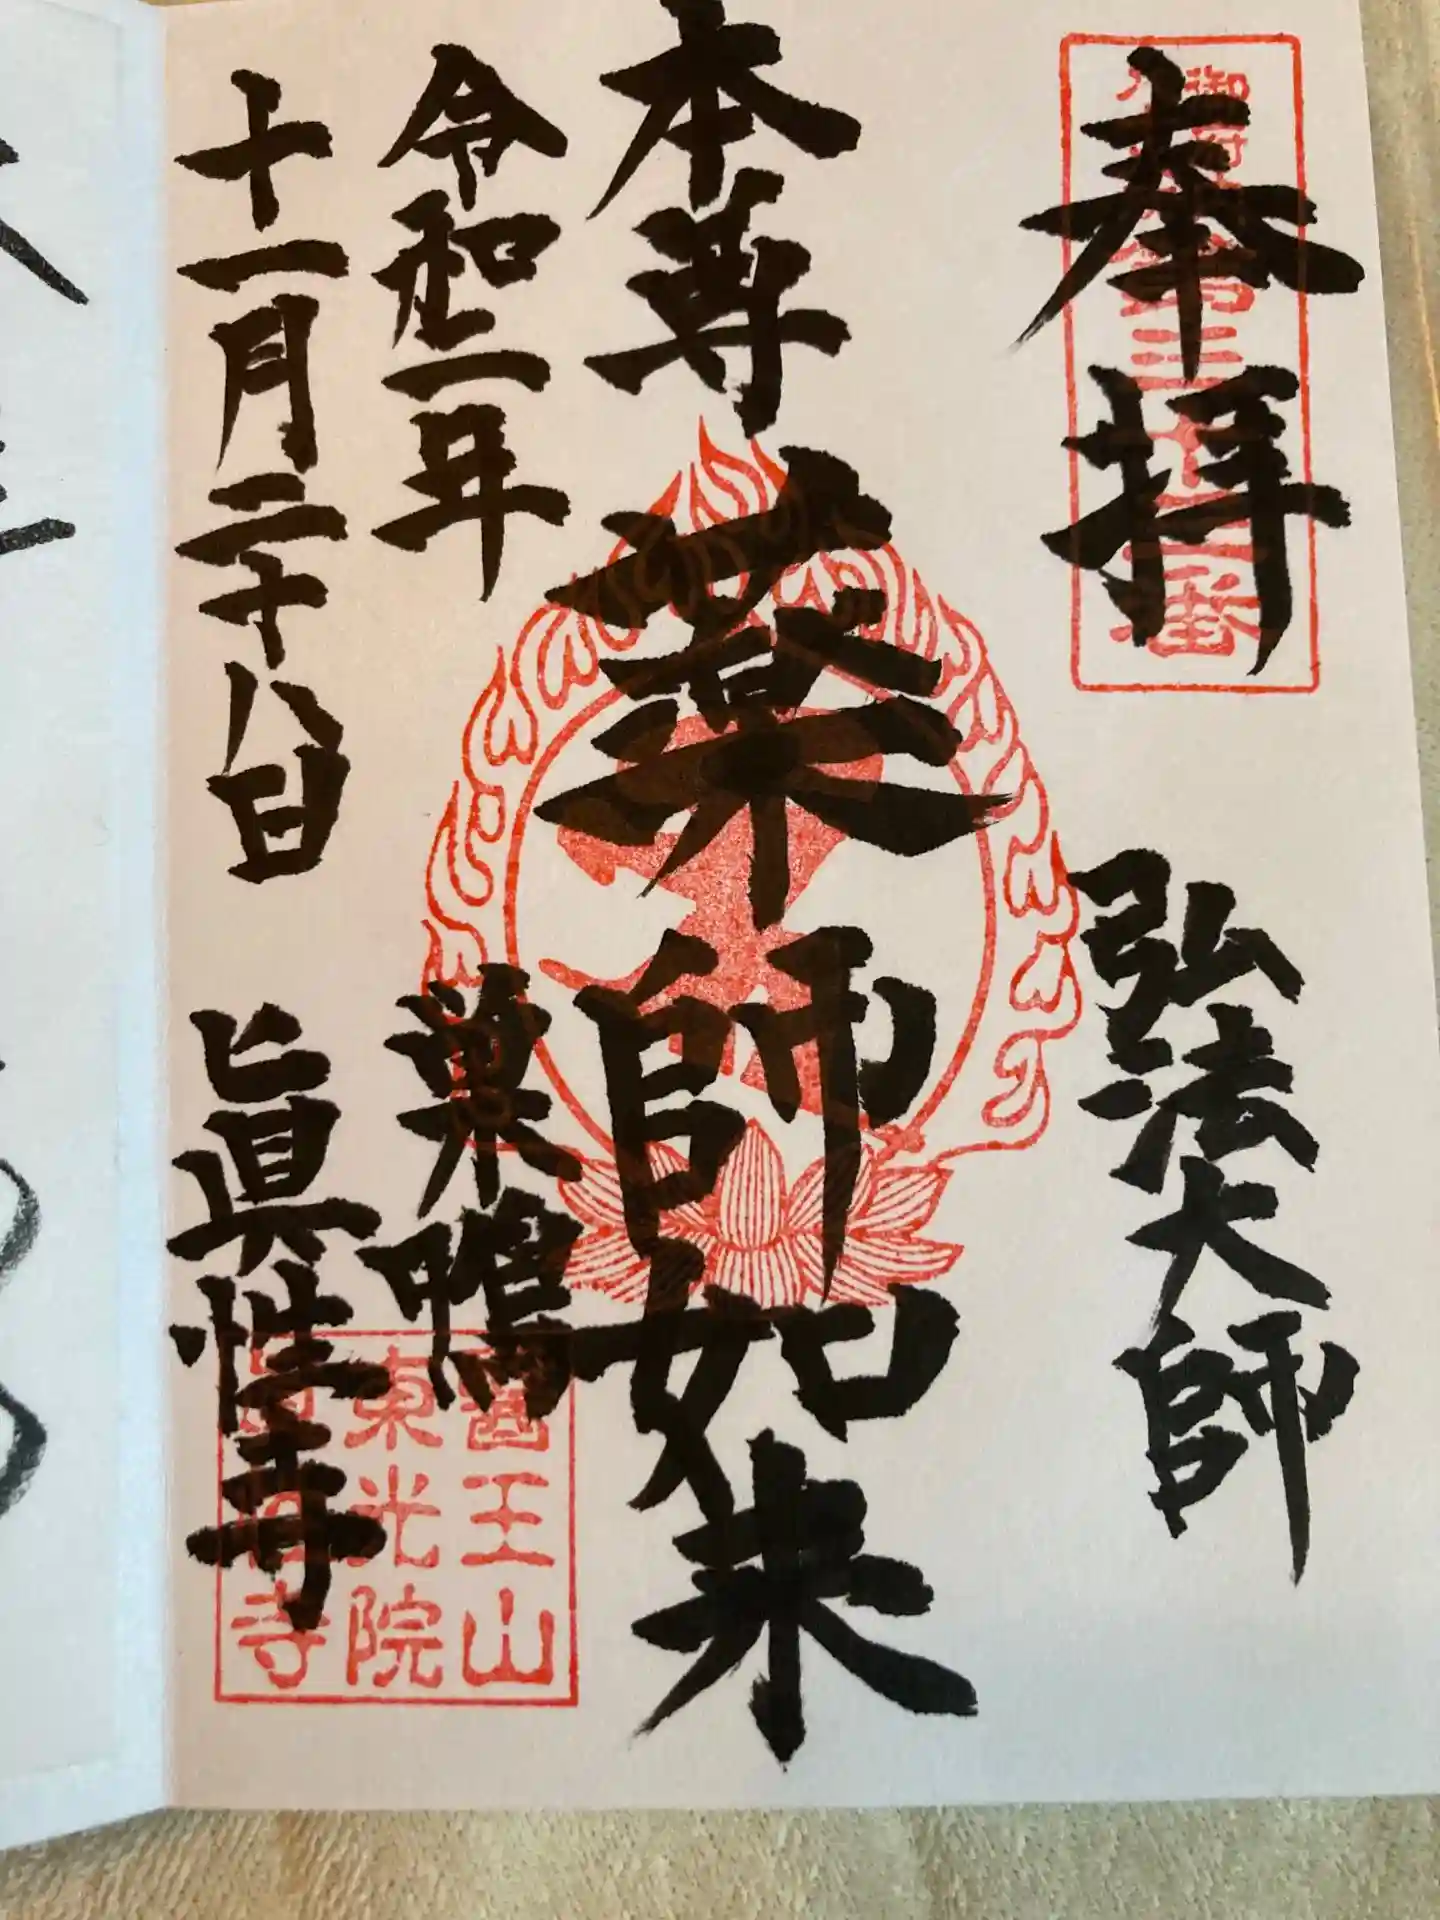 奉拝
弘法大師
第三十三番
本尊
薬師如来
令和二年
巣鴨
十一月二十八日
眞性寺
醫王山
東光院
眞性寺